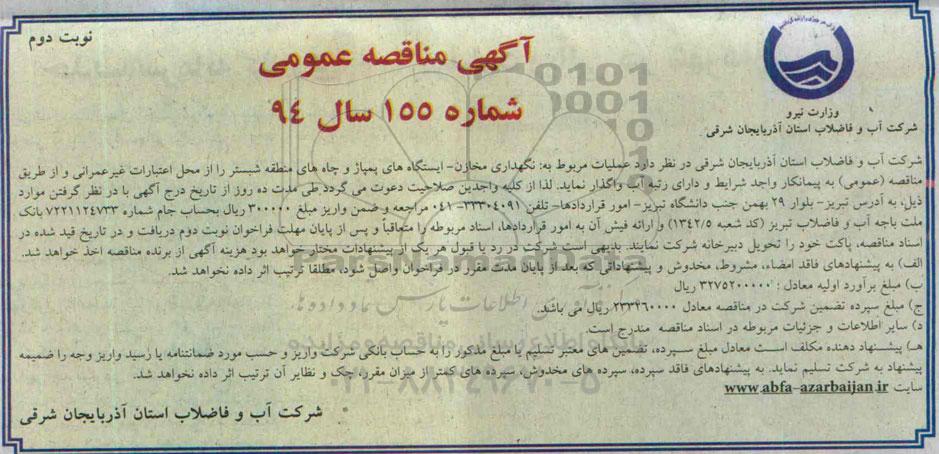 نوبت دوم
آگهی مناقصه عمومی
شماره ۱۵۵ سال ۹۴
وزارت نیرو
شرکت آب و فاضلاب استان آذربایجان شرقی
شرکت آب و فاضلاب استان آذربایجان شرقی در نظر دارد عملیات مربوط به: نگهداری مخازن- ایستگاه های پمپاژ و چاه های منطقه شبستر را از محل اعتبارات غیرعمرانی و از طریق
مناقصه (عمومی) به پیمانکار واجد شرایط و دارای رتبه آب واگذار نماید. لذا از کلیه واجدین صلاحیت دعوت می گردد طی مدت ده روز از تاریخ درج آگهی با در نظر گرفتن موارد
ذیل، به آدرس تبریز- بلوار ۲۹ بهمن جنب دانشگاه تبریز- امور قراردادها- تلفن ۳۳۳۰۴۰۹۱- ۰۴۱ مراجعه و ضمن واریز مبلغ ۳۰۰۰۰۰ ریال بحساب جام شماره ۷۲۲۱۱۲۴۷۳۳ بانک
ملت باجه آب و فاضلاب تبریز (کد شعبه ۱۳۴۲/۵) و ارائه فیش آن به امور قراردادها، اسناد مربوطه را متعاقباً و پس از پایان مهلت فراخوان نوبت دوم دریافت و در تاریخ قید شده در
اسناد مناقصه، پاکت خود را تحویل دبیرخانه شرکت نمایند. بدیهی است شرکت در رد یا قبول هر یک از پیشنهادات مختار خواهد بود هزینه آگهی از برنده مناقصه اخذ خواهد شد.
الف) به پیشنهادهای فاقد امضاء، مشروط، مخدوش و پیشنهاداتی که بعد از پایان مدت مقرر در فراخوان واصل شود، مطلقا ترتیب اثر داده نخواهد شد.
ب) مبلغ برآورد اولیه معادل : ۳۲۷۵۲۰۰۰۰۰ ریال
ج) مبلغ سپرده تضمین شرکت در مناقصه معادل ۲۳۳۴۶۰۰۰۰ ریال می باشد.
د) سایر اطلاعات و جزئیات مربوطه در اسناد مناقصه مندرج است.
هـ) پیشنهاد دهنده مکلف است معادل مبلغ سپرده، تضمین های معتبر تسلیم یا مبلغ مذکور را به حساب بانکی شرکت واریز و حسب مورد ضمانتنامه یا رسید واریز وجه را ضمیمه
پیشنهاد به شرکت تسلیم نماید. به پیشنهادهای فاقد سپرده، سپرده های مخدوش، سپرده های کمتر از میزان مقرر، چک و نظایر آن ترتیب اثر داده نخواهد شد.
سایت www.abfa-azarbaijan.ir
شرکت آب و فاضلاب استان آذربایجان شرقی
ParsNamadData